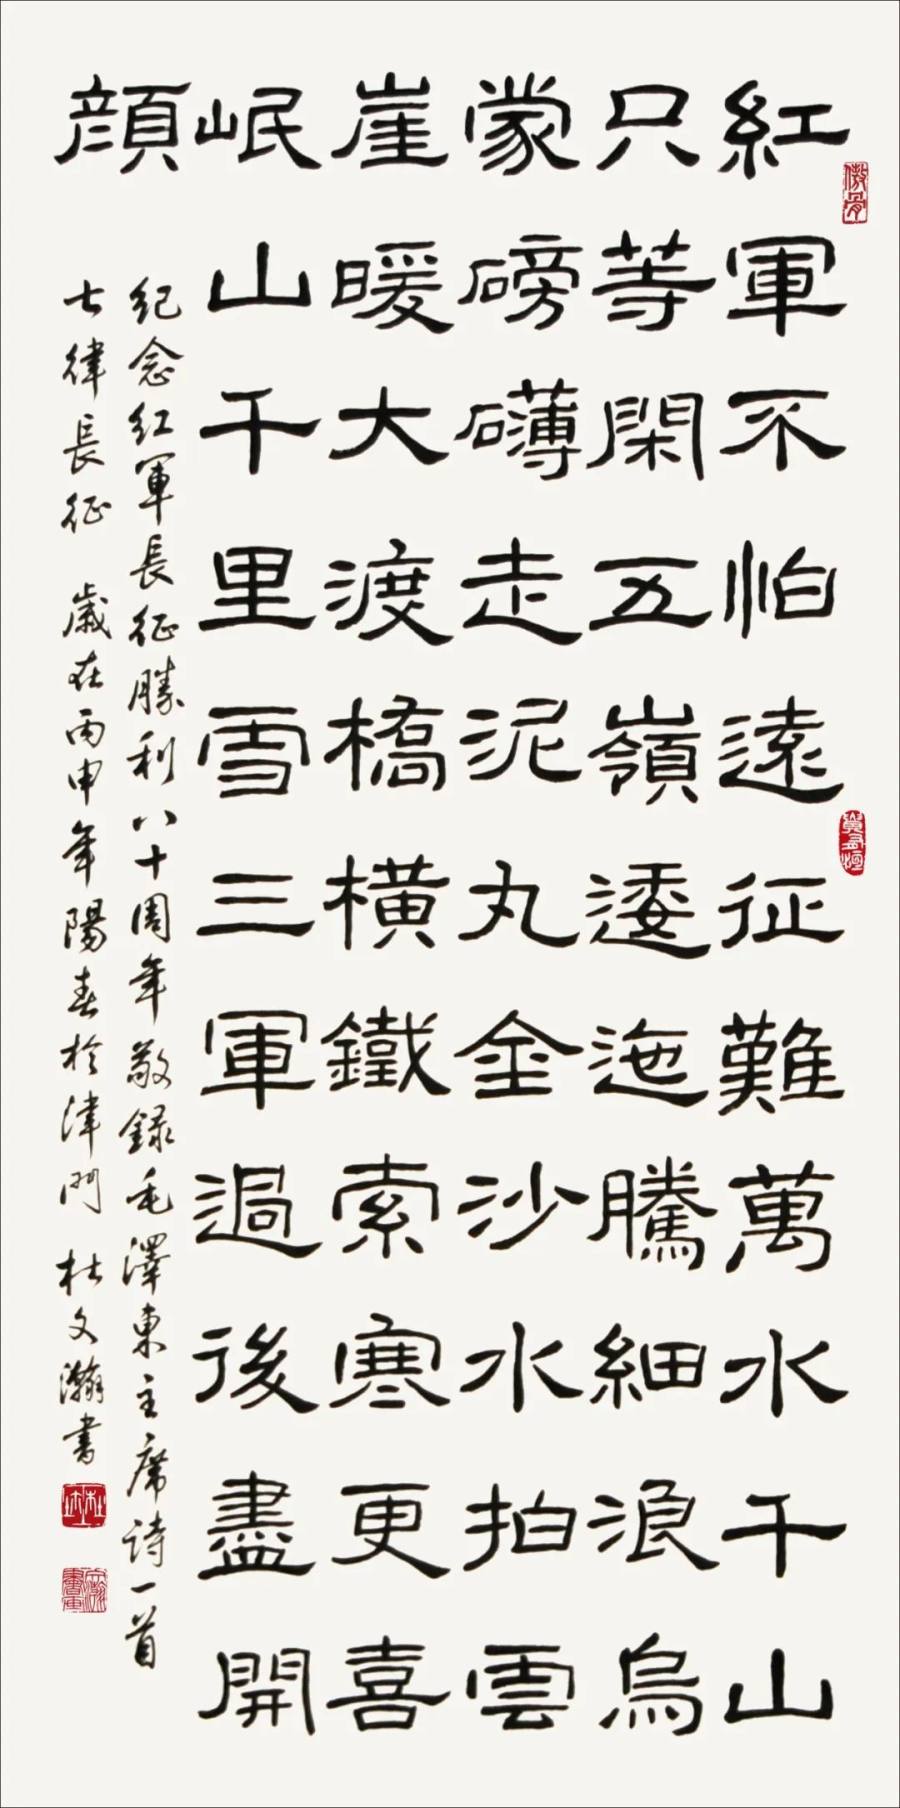 紅軍不怕遠征難萬水千山
只等閑五嶺逶迤騰細浪烏
濛磅礴走泥丸金沙水拍雲
崖暖大渡橋橫鐵索寒更喜
岷山千里雪三軍過後盡開
顏
纪念红軍長征勝利八十周年敬録毛澤東主席诗一首
七律長征 歲在丙申年陽春於津門 杜文瀚書
傲骨
貴有恒